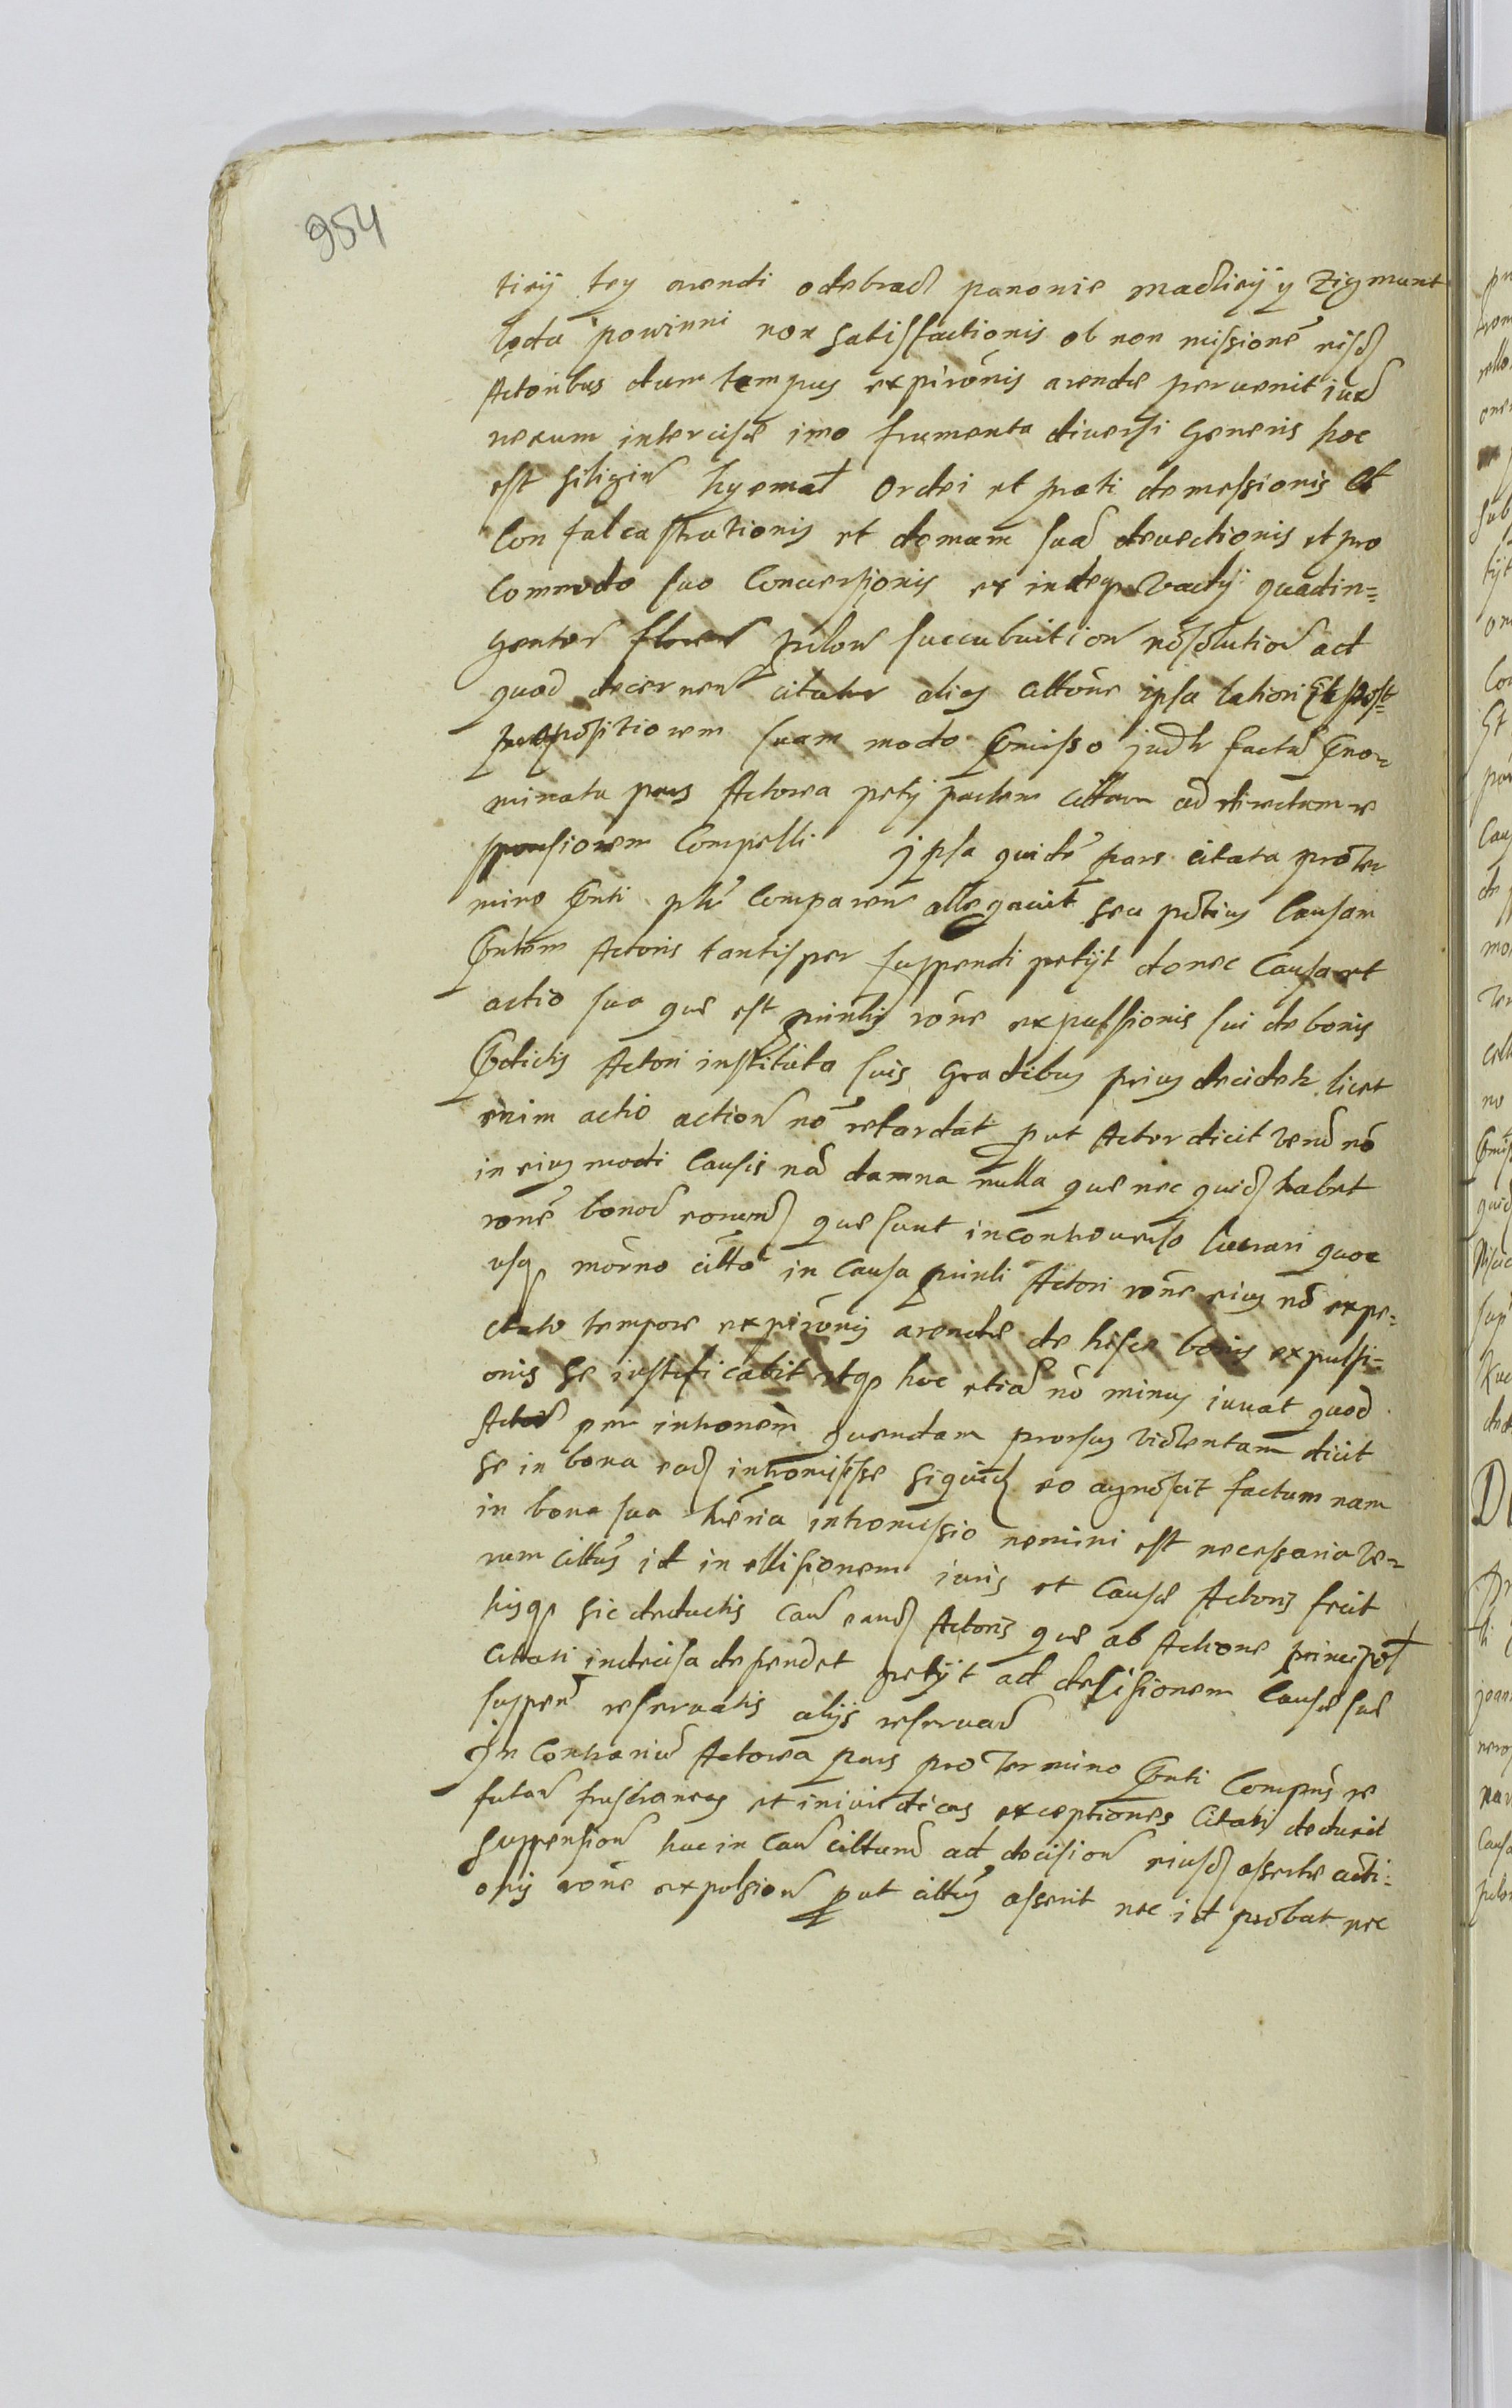 954
tiey tey arendi odebrać panowie Maciey y Zigmunt
będą powinni non satisfactionis ob non missione eisd
Actoribus dum tempus expirónis arende peruenit iux
nexum intercise imo frumenta diuersi generis hoc
est siligin hyemal Ordei et prati demessionis et
Confalcastrationis et domum sua deuectionis et pro
Commodo suo Conuersionis ex indeque Vadij quadin=
genter pclor succubuition resolution ad
quod decernen citatur alias cittóne ipsa latiori Et post
propositionem suam modo pmisso judr factu pno
minata pars Actorea petij partem cittam ad directam re
sponsionem Compelli jpsa quidē pars citata pro ter
mino pnti ptr Comparen allegauit seu potius Causam
pntem Actoris tantisper suspendi petijt donec Causa et
actio sua que est róne expulsionis sui de bonis
pdictis Actori instituta suis Gradibus prius decidetr licet
enim actio action nō retardat put Actor dicit veru nō
in eiusmodi Causis na damna nulla que nec quid habet
ronē bonor eorund que sunt in controuerso lucrari quoe
usq in Causa Actori rone eius nō expe=
ctato tempore expirónis arende de hisce bonis expulsi=
onis se iustificabit atq hoc etia nō minus iuuat quod
Actor per intronem quendam prorsus violentam dicit
se in bona ead intromisisse siquid eo agnoscit factum nam
in bona sua intromissio nemini est necessaria Ve=
rum cittus id in ellisionem iuris et Cause Actoris fecit
hisq sic deductis Cau eand Actoris que ab Actione principal
Citati indecisa dependet petijt ad decisionem Cause sue
suspen reseruatis alijs reseruad
In Contrariu Actorea pars pro termino pnti Compns re
futan frustraneas et iniuridicas exceptiones Citati deduxit
suspension huc in Cau cittum ad decision eiusd asserte acti:
onis róne expulsion put cittus asserit nec id probat nec